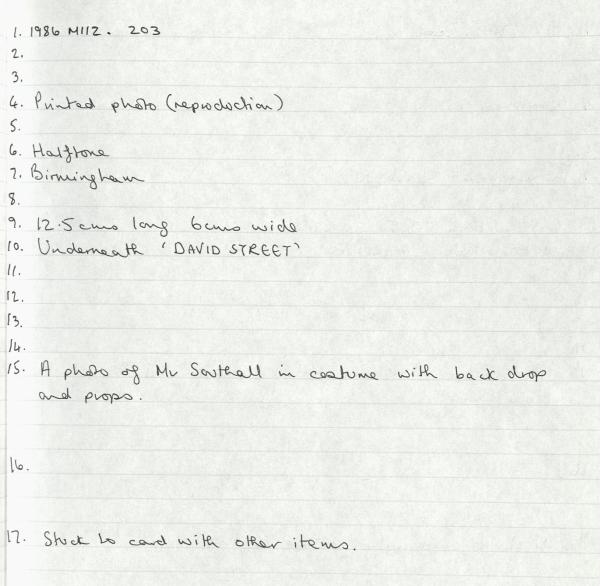 1. 1986 M112. 203
2.
3.
4. Printed photo (reproduction)
5.
6. Halftone
7. Birmingham
8.
9. 12.5cms long 6cms wide
10. Underneath 'DAVID STREET'
11.
12.
13.
14.
15. A photo of Mr Southall in costume with back drop
and props.
16.
17. Stuck to card with other items.